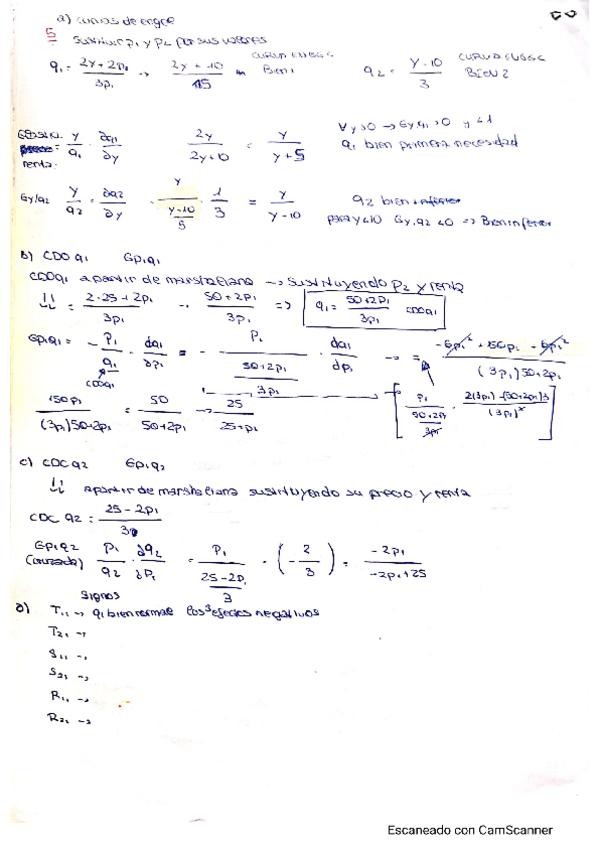 a) curvas de engel
5 Sustituir p₁ y p₂ por sus valores
q₁ = 2y + 2p₁ / 3p₁ → 2y + 10 / 15 CURVA ENGEL BIEN 1 q₂ = y - 10 / 3 CURVA ENGEL BIEN 2
renta: y/q₁ · ∂q₁/∂y 2y / 2y + 10 = y / y + 5 ∀y > 0 → Ey q₁ > 0 y < 1
q₁ bien primera necesidad
Ey/q₂ y/q₂ · ∂q₂/∂y · y / (y - 10 / 5) · 1/3 = y / y - 10 q₂ bien inferior
para y < 10 Ey, q₂ < 0 => Bien inferior
b) CDO q₁ Ep₁q₁
CDOq₁ a partir de marshaliana → sustituyendo p₂ y renta
= 2·25 + 2p₁ / 3p₁ → 50 + 2p₁ / 3p₁ => q₁ = 50 + 2p₁ / 3p₁ CDOq₁
Ep₁q₁ = - p₁/q₁ · dq₁/dp₁ = - p₁ / (50 + 2p₁ / 3p₁) · dq₁/dp₁ → = -6p₁² + 150p₁ - 6p₁² / (3p₁) 50 + 2p₁
CDOq₁
150p₁ / (3p₁) 50 + 2p₁ = 50 / 50 + 2p₁ → 25 / 25 + p₁ [ p₁ / (50 + 2p₁ / 3p₁) · 2(3p₁) - (50 + 2p₁)3 / (3p₁)² ]
c) CDC q₂ Ep₁q₂
a partir de marshaliana sustituyendo su precio y renta
CDC q₂ = 25 - 2p₁ / 3
Ep₁q₂ (cruzada) p₁/q₂ · ∂q₂/∂p₁ = p₁ / (25 - 2p₁ / 3) · (- 2/3) = -2p₁ / -2p₁ + 25
signos
d) T₁₁ → q₁ bien normal los 3 efectos negativos
T₂₁ →
S₁₁ →
S₂₁ →
R₁₁ →
R₂₁ →
Escaneado con CamScanner